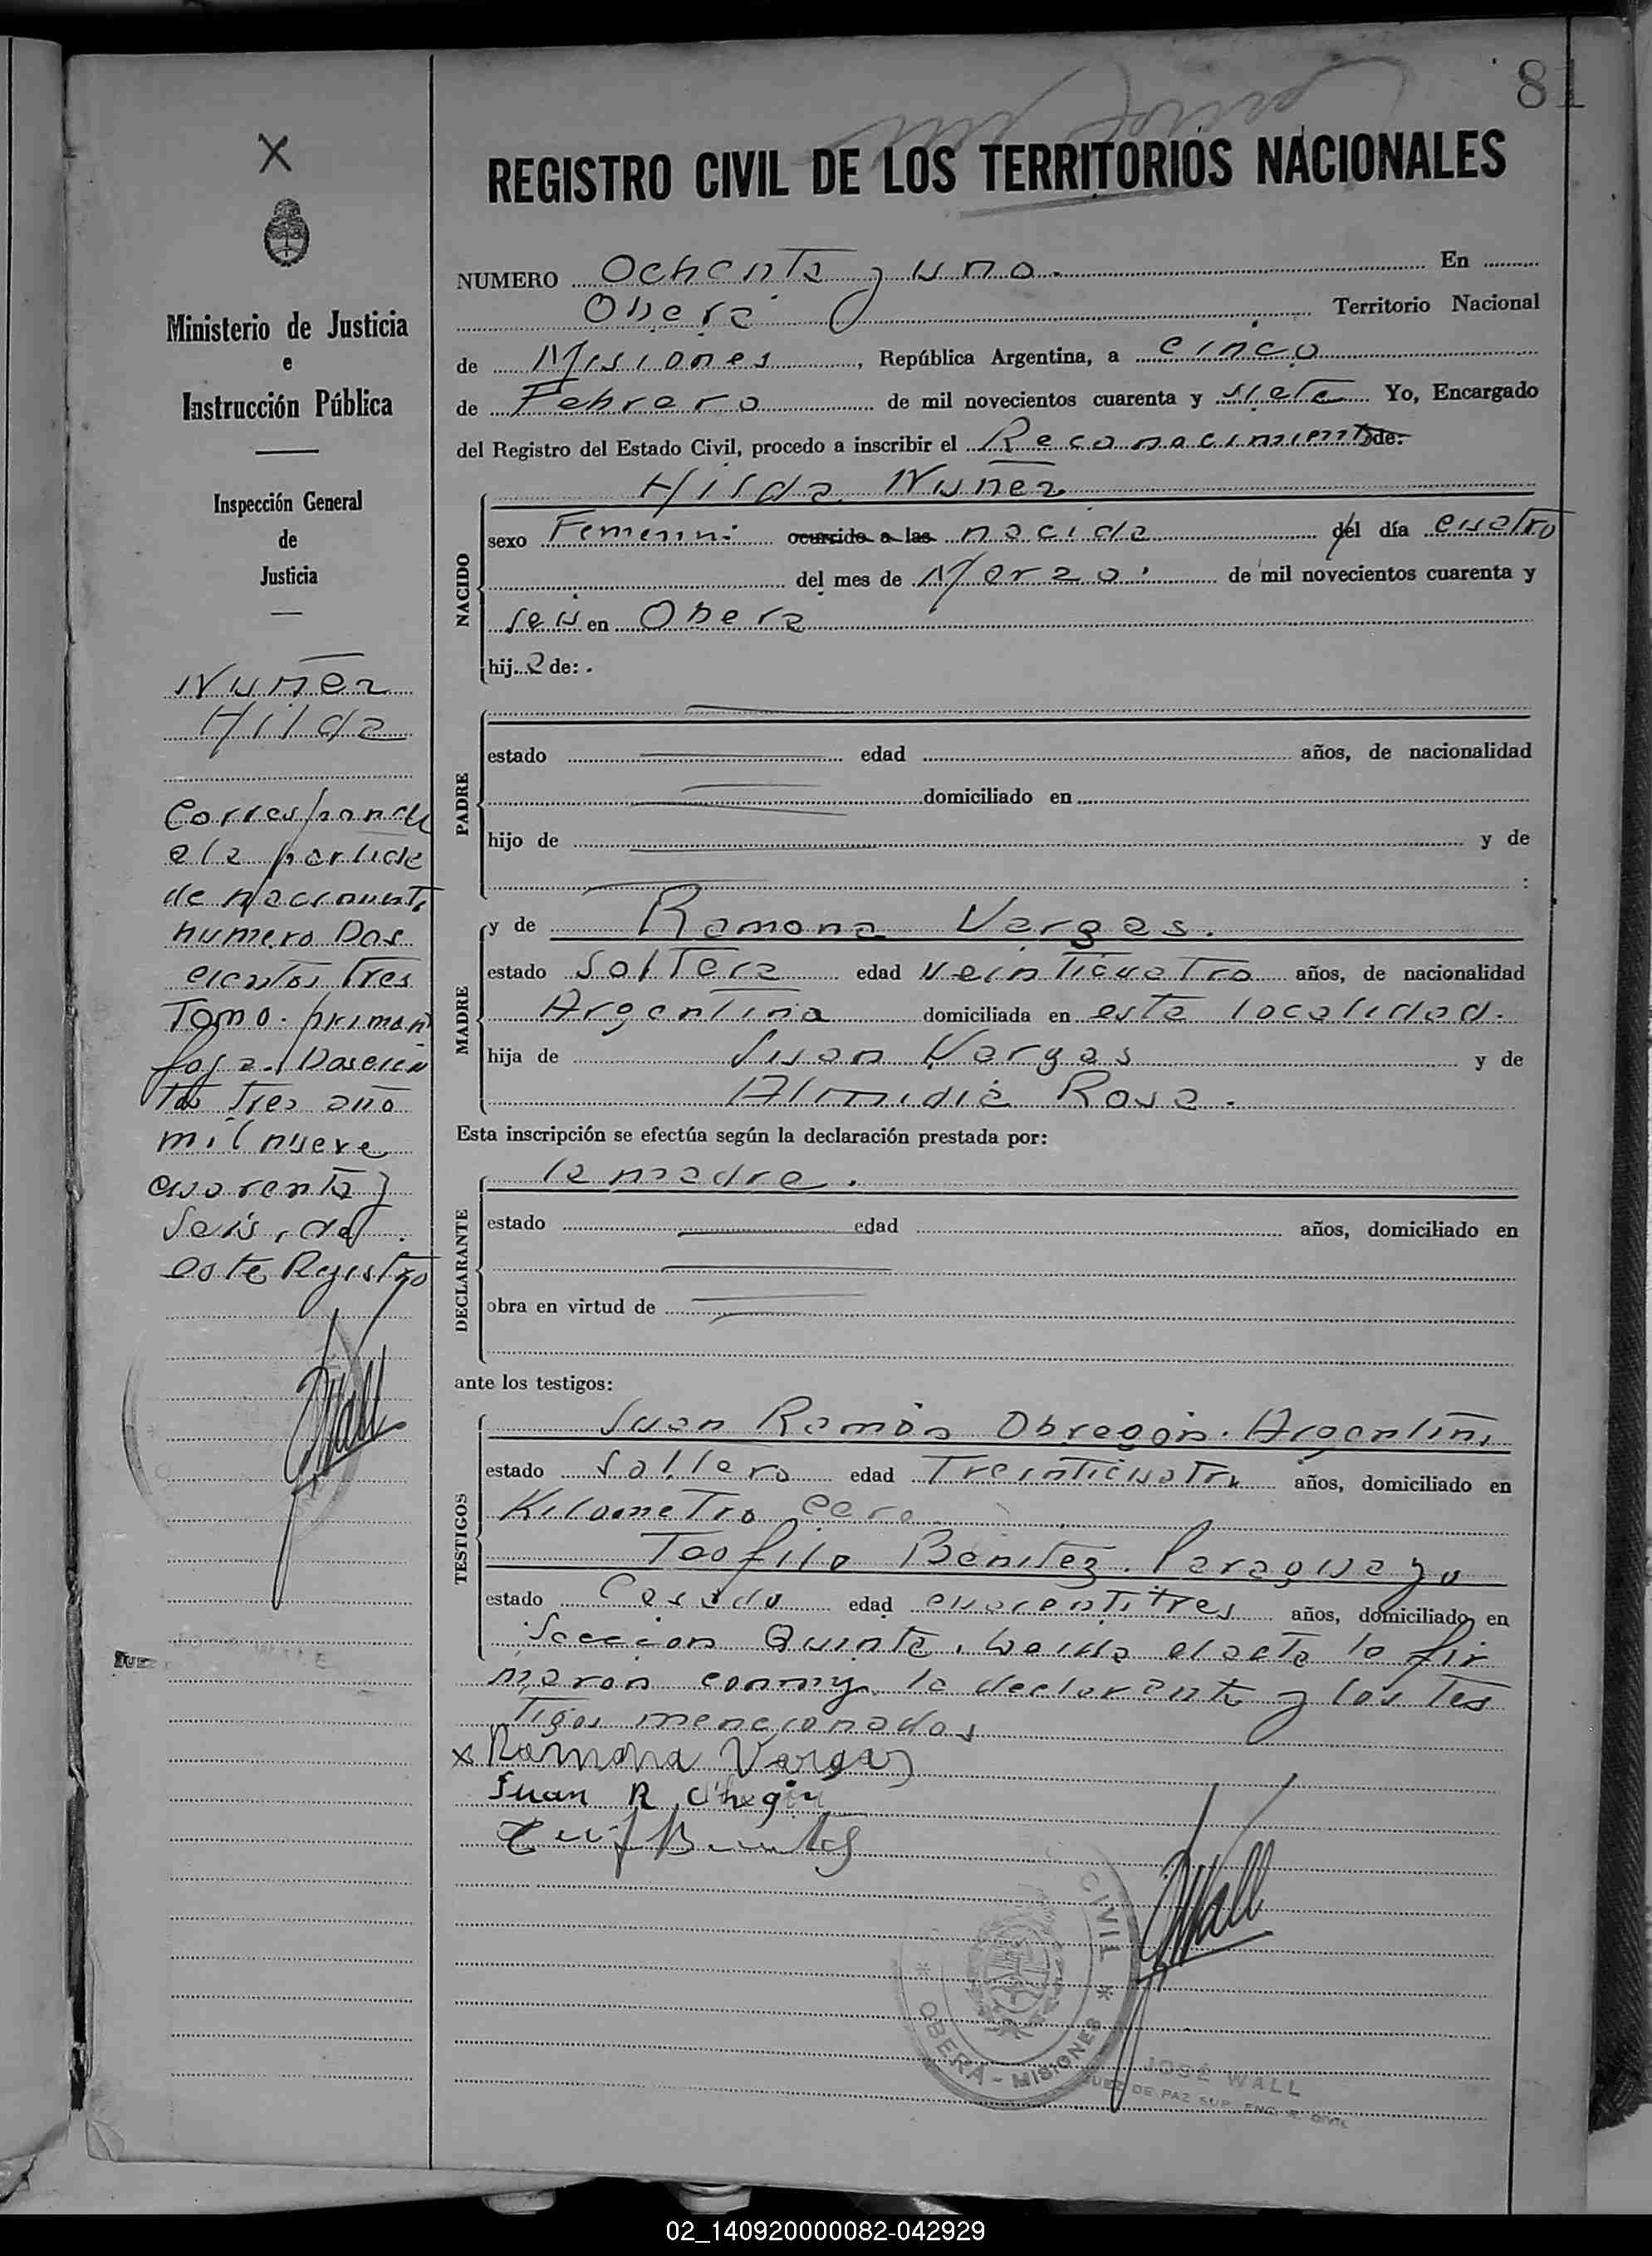 81
REGISTRO CIVIL DE LOS TERRITORIOS NACIONALES
X
Ministerio de Justicia
e
Instrucción Pública
Inspección General
de
Justicia
Nuñez
Hilda
Corresponde
a la partida
de nacimiento
numero Dos
cientos tres
Tomo primero
foja Doscien
tos tres año
mil nueve
cuarenta y
seis, del
este Registro
Wall
NUMERO Ochenta y uno. En
Oberá Territorio Nacional
de Misiones, República Argentina, a cinco
de Febrero de mil novecientos cuarenta y siete Yo, Encargado
del Registro del Estado Civil, procedo a inscribir el Reconocimiento de:
NACIDO
Hilda Nuñez
sexo Femenin. ocurrido a las nacida del día cuatro
del mes de Marzo de mil novecientos cuarenta y
seis en Obera
hija de:
PADRE
estado edad años, de nacionalidad
domiciliado en
hijo de y de
MADRE
y de Ramona Vargas.
estado Soltera edad veinticuatro años, de nacionalidad
Argentina domiciliada en esta localidad.
hija de Juan Vargas y de
Rosa.
Esta inscripción se efectúa según la declaración prestada por:
DECLARANTE
la madre.
estado edad años, domiciliado en
obra en virtud de
ante los testigos:
TESTIGOS
Juan Ramón Obregón. Argentin
estado Soltero edad Treinticuatro años, domiciliado en
Kilometro cero
Teofilo Benitez. Paraguayo
estado Casado edad cuarentitres años, domiciliado en
Seccion Quinta. Leida el acta la fir
maron conmigo la declarante y los tes
tigos mencionados
x Ramona Vargas
Juan R.
Wall
CIVIL * OBERÁ - MISIONES *
JOSÉ WALL
JUEZ DE PAZ SUP. ENC. R. CIVIL
02_140920000082-042929